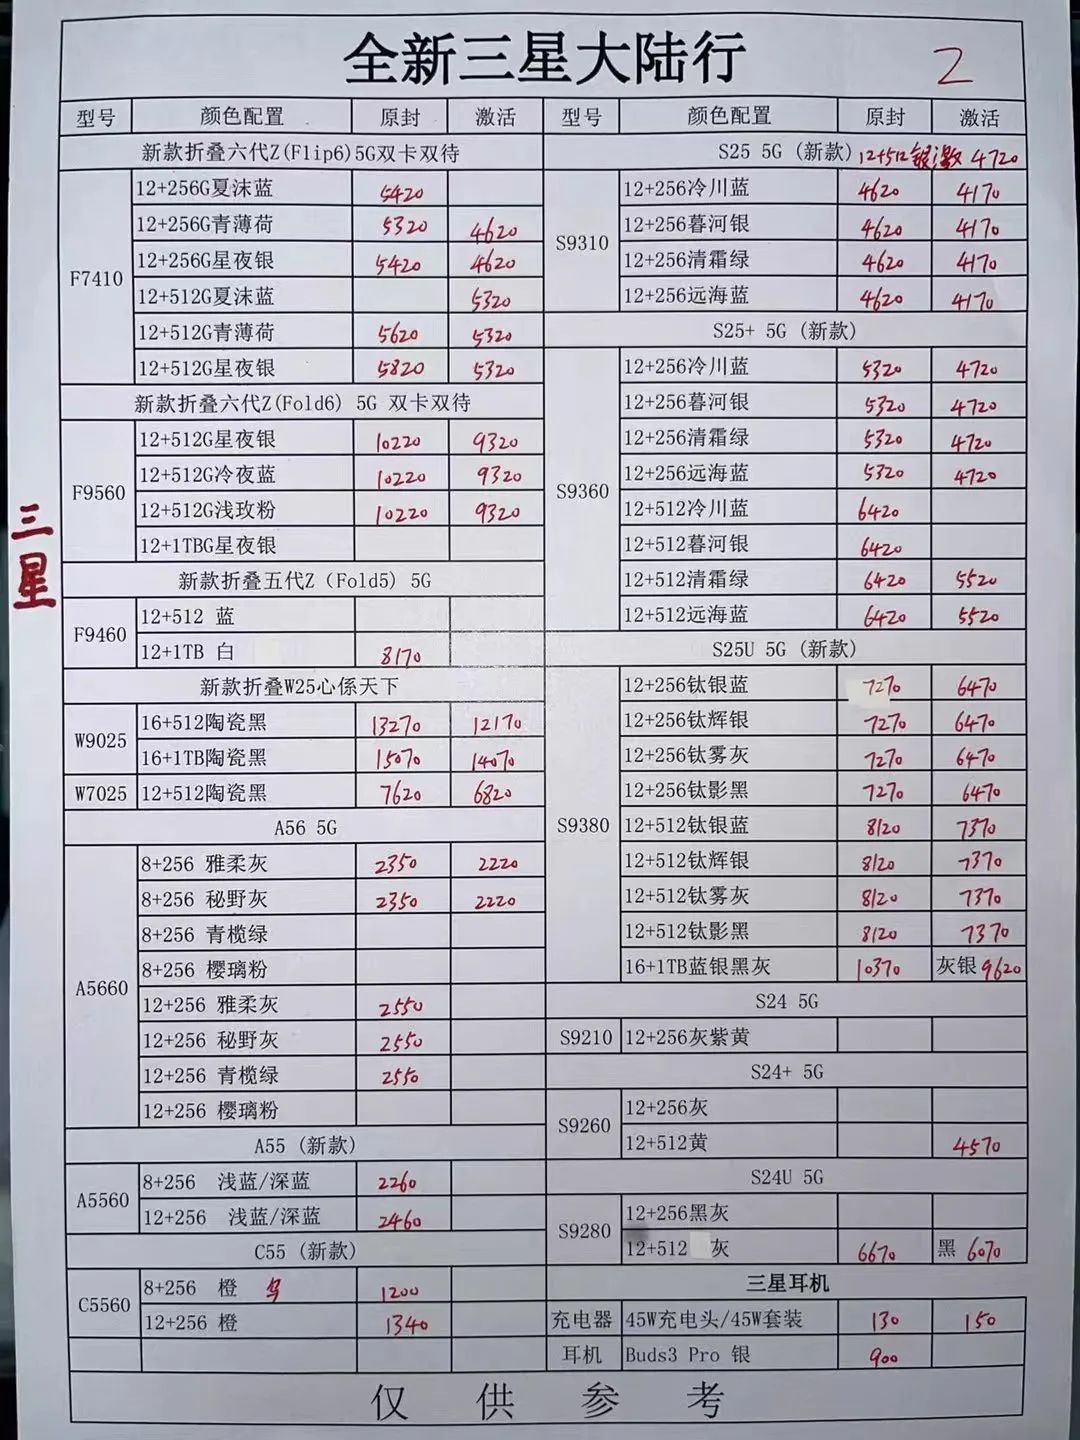 全新三星大陆行 2
型号 颜色配置 原封 激活
新款折叠六代Z(Flip6)5G双卡双待
F7410
12+256G夏沫蓝 5420
12+256G青薄荷 5320 4620
12+256G星夜银 5420 4620
12+512G夏沫蓝 5320
12+512G青薄荷 5620 5320
12+512G星夜银 5820 5320
新款折叠六代Z(Fold6) 5G 双卡双待
F9560
12+512G星夜银 10220 9320
12+512G冷夜蓝 10220 9320
12+512G浅玫粉 10220 9320
12+1TBG星夜银
新款折叠五代Z（Fold5) 5G
F9460
12+512 蓝
12+1TB 白 8170
新款折叠W25心係天下
W9025
16+512陶瓷黑 13270 12170
16+1TB陶瓷黑 15070 14070
W7025 12+512陶瓷黑 7620 6820
A56 5G
A5660
8+256 雅柔灰 2350 2220
8+256 秘野灰 2350 2220
8+256 青榄绿
8+256 樱璃粉
12+256 雅柔灰 2550
12+256 秘野灰 2550
12+256 青榄绿 2550
12+256 樱璃粉
A55 (新款)
A5560
8+256 浅蓝/深蓝 2260
12+256 浅蓝/深蓝 2460
C55 (新款)
C5560
8+256 橙 1200
12+256 橙 1340
三星
型号 颜色配置 原封 激活
S25 5G (新款) 12+512银激 4720
S9310
12+256冷川蓝 4620 4170
12+256暮河银 4620 4170
12+256清霜绿 4620 4170
12+256远海蓝 4620 4170
S25+ 5G (新款)
S9360
12+256冷川蓝 5320 4720
12+256暮河银 5320 4720
12+256清霜绿 5320 4720
12+256远海蓝 5320 4720
12+512冷川蓝 6420
12+512暮河银 6420
12+512清霜绿 6420 5520
12+512远海蓝 6420 5520
S25U 5G (新款)
S9380
12+256钛银蓝 7270 6470
12+256钛辉银 7270 6470
12+256钛雾灰 7270 6470
12+256钛影黑 7270 6470
12+512钛银蓝 8120 7370
12+512钛辉银 8120 7370
12+512钛雾灰 8120 7370
12+512钛影黑 8120 7370
16+1TB蓝银黑灰 10370 灰银9620
S24 5G
S9210 12+256灰紫黄
S24+ 5G
S9260
12+256灰
12+512黄 4570
S24U 5G
S9280
12+256黑灰
12+512 灰 6670 黑 6070
三星耳机
充电器 45W充电头/45W套装 130 150
耳机 Buds3 Pro 银 900
仅供参考